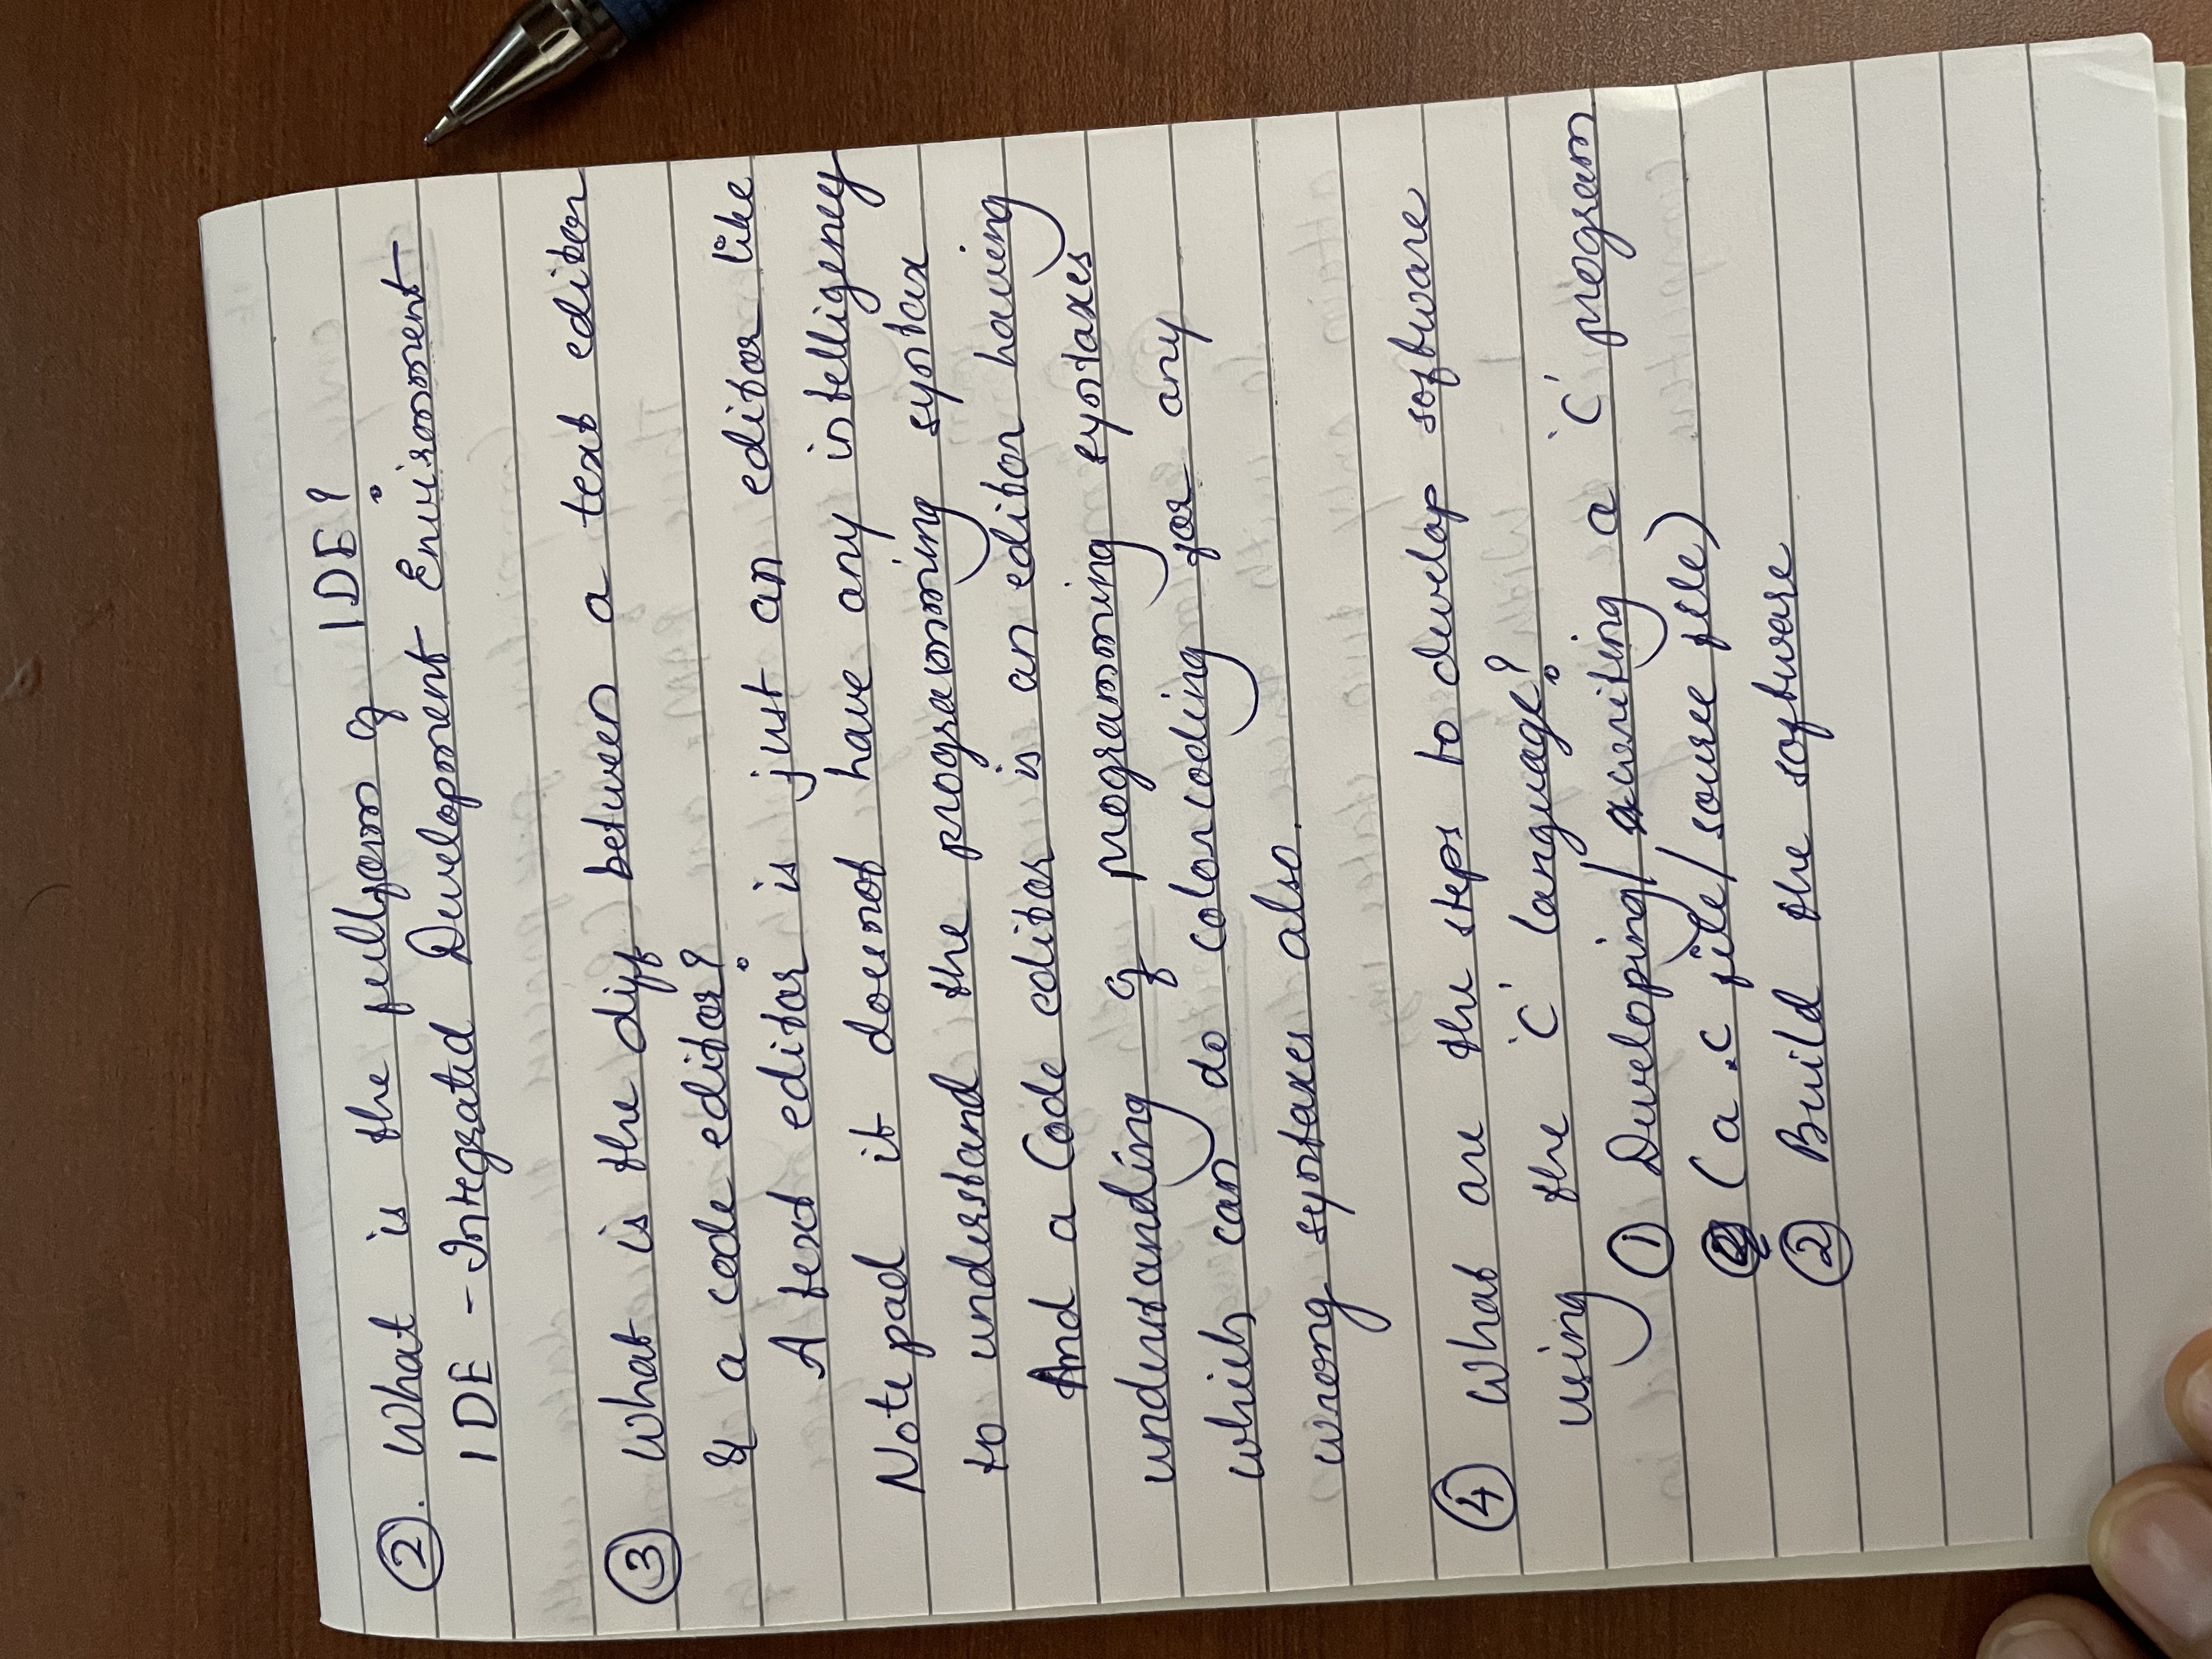 ②. What is the fullform of IDE?
IDE - Integrated Development Environment
③ What is the diff between a text editor
& a code editor?
A text editor is just an editor like
Notepad it doesnot have any intelligency
to understand the programming syntax
And a Code editor is an editor having
understanding of programming syntaxes
which can do colorcoding for any
wrong syntaxes also.
④ What are the steps to develop software
using the 'C' language?
① Developing/ writing a 'C' program
(a .c file/source file)
② Build the software